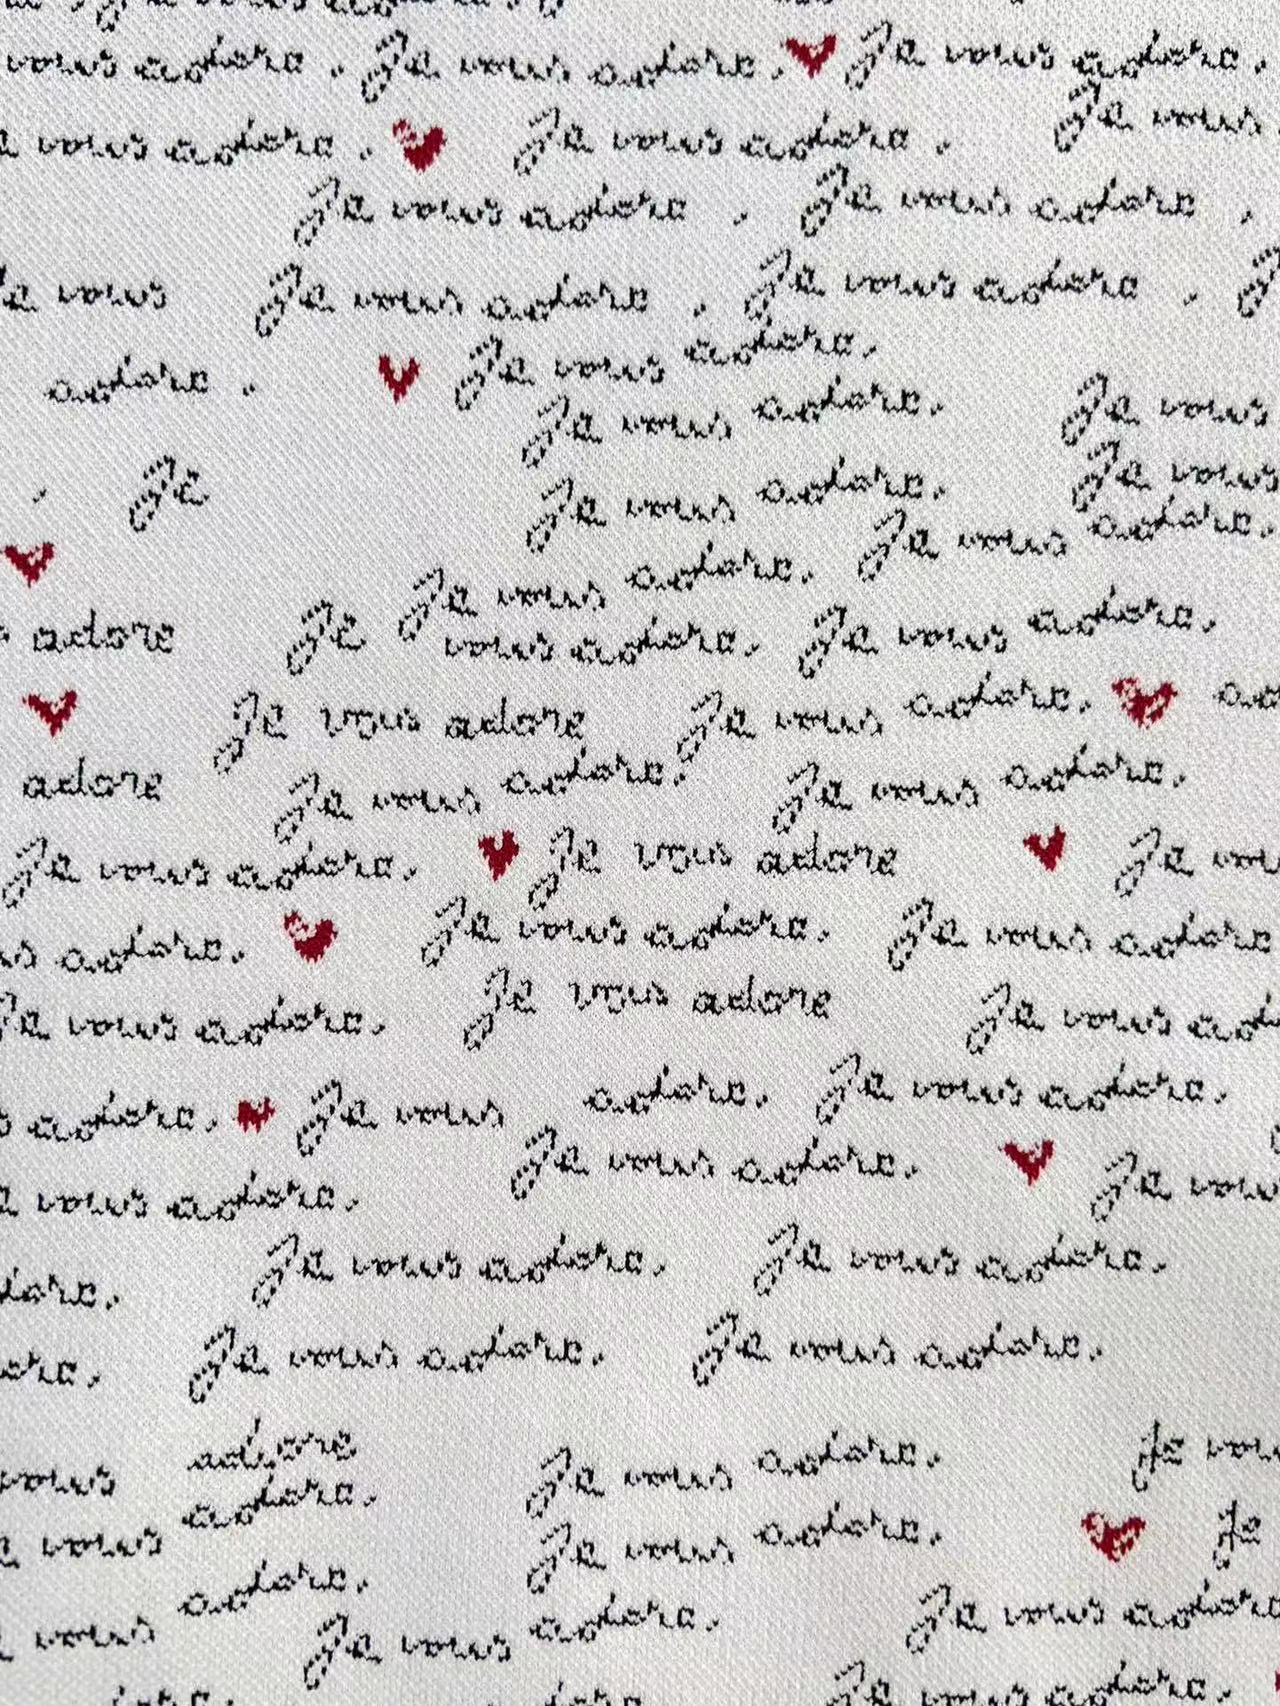 vous adore. Je vous adore. Je vous adore.
Je vous
vous adore. Je vous adore.
Je vous adore. Je vous adore.
Je vous Je vous adore. Je vous adore.
adore. Je vous adore.
Je vous adore. Je vous
Je Je vous adore. Je vous
Je vous adore.
Je vous adore.
adore Je vous adore. Je vous adore.
Je vous adore Je vous adore.
adore Je vous adore. Je vous adore.
Je vous adore. Je vous adore Je
adore. Je vous adore. Je vous adore
Je vous adore. Je vous adore Je vous
adore. Je vous adore. Je vous adore.
vous adore. Je vous adore. Je
Je vous adore. Je vous adore.
Je vous adore. Je vous adore.
vous adore Je vous adore. Je
vous adore. Je vous adore. Je
vous adore. Je vous adore. Je vous adore
Je vous adore.